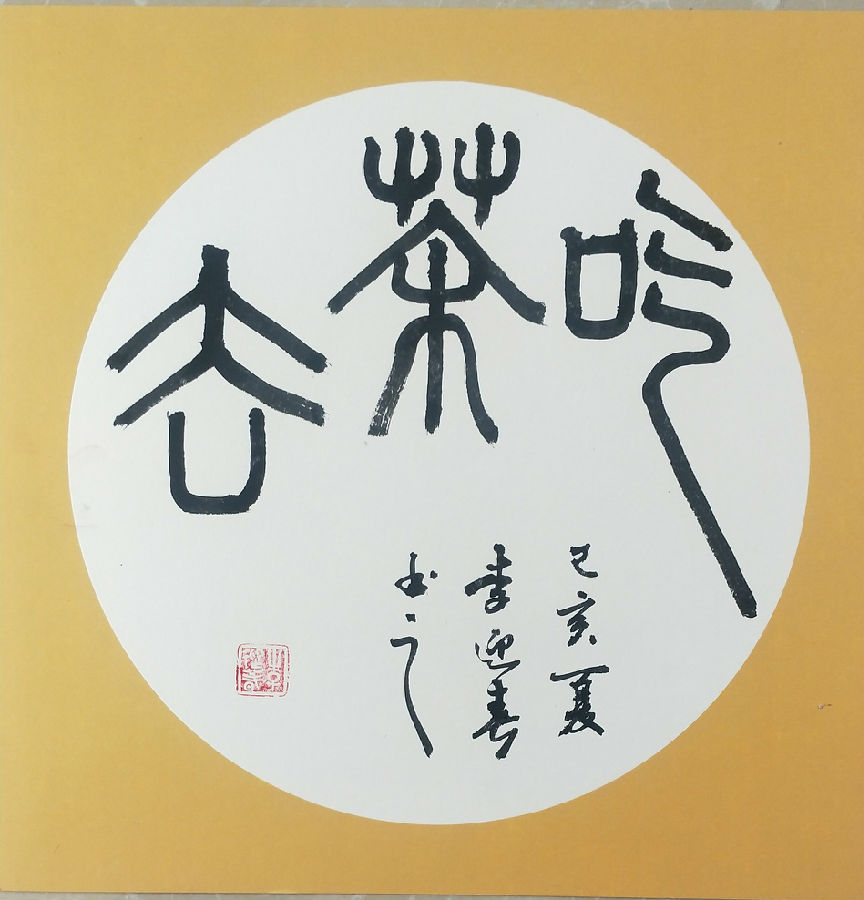 吃茶去
己亥夏
李迎春
书之